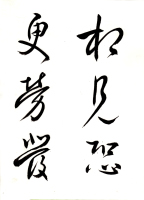 相見恐
更勞發